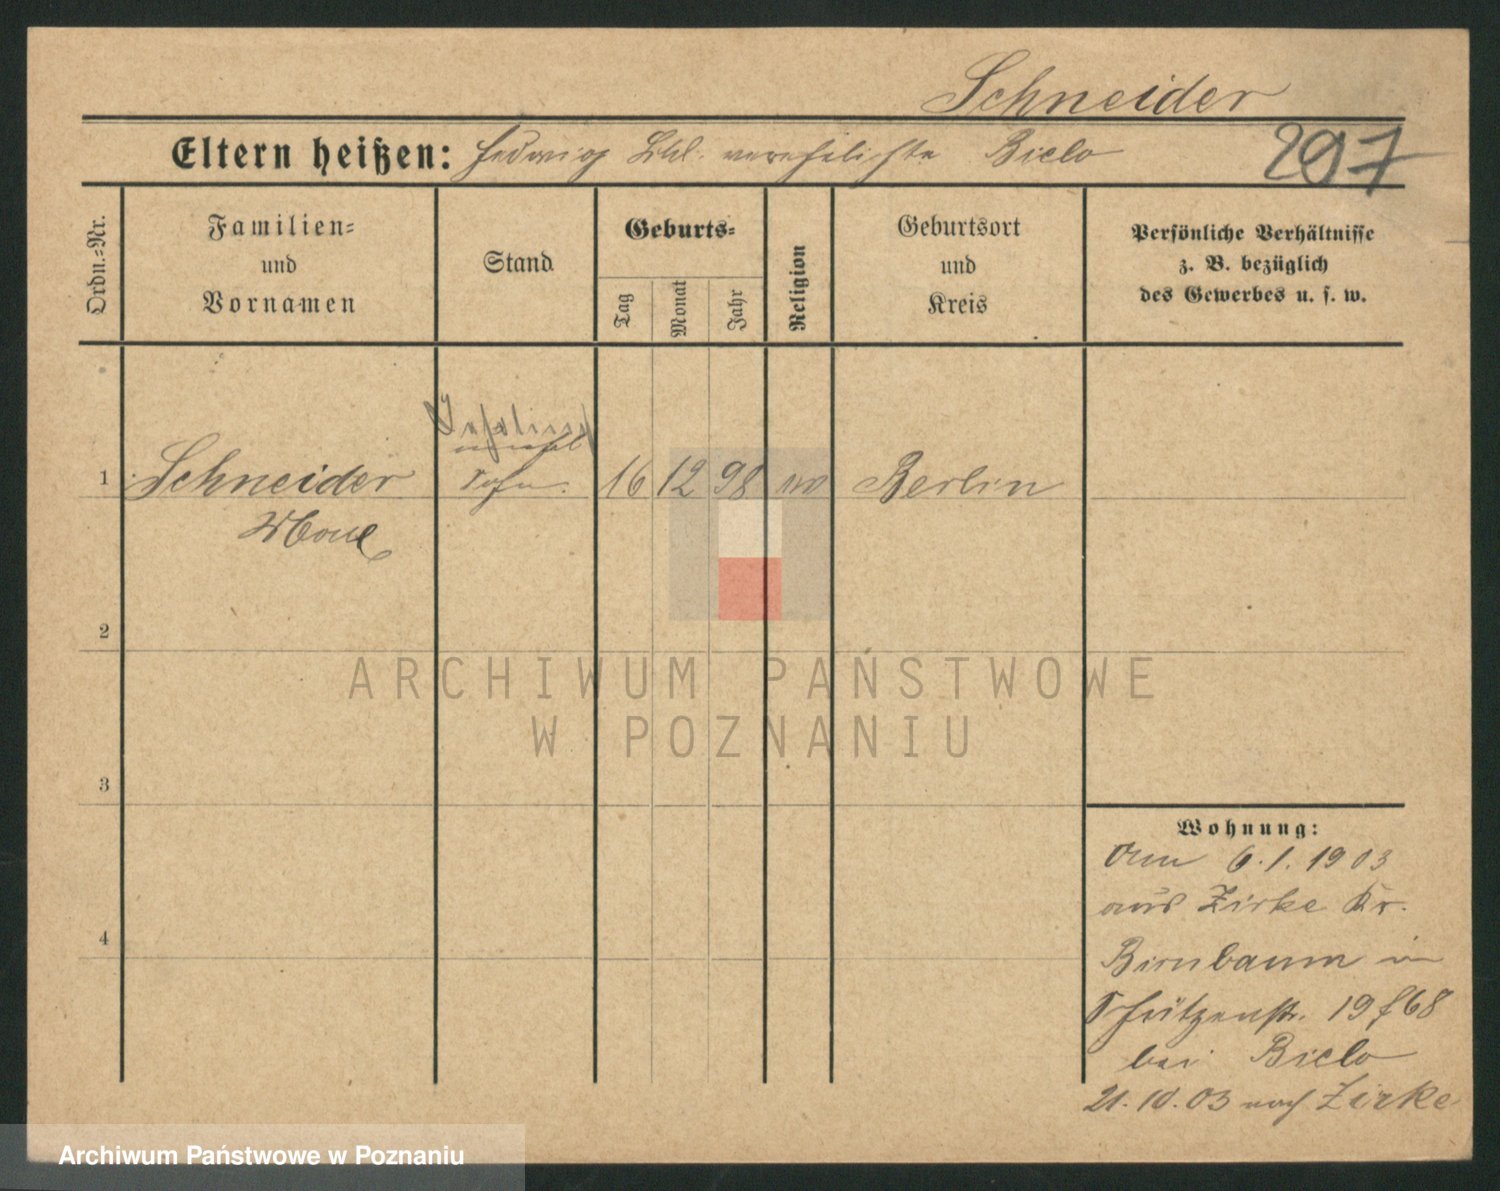 Schneider
Eltern heißen: Hedwig Schl. verehelichte Bielo
297
Ordn.=Nr.
Familien=
und
Vornamen
Stand
Geburts=
Tag
Monat
Jahr
Religion
Geburtsort
und
Kreis
Persönliche Verhältnisse
z. B. bezüglich
des Gewerbes u. s. w.
1 Schneider Sohn. 16 12 98 Berlin
2
3
4
Wohnung:
Am 6.1.1903
aus Zirke Kr.
Birnbaum in
Schützenstr. 19 f 68
bei Bielo
21.10.03 nach Zirke
ARCHIWUM PAŃSTWOWE
W POZNANIU
Archiwum Państwowe w Poznaniu